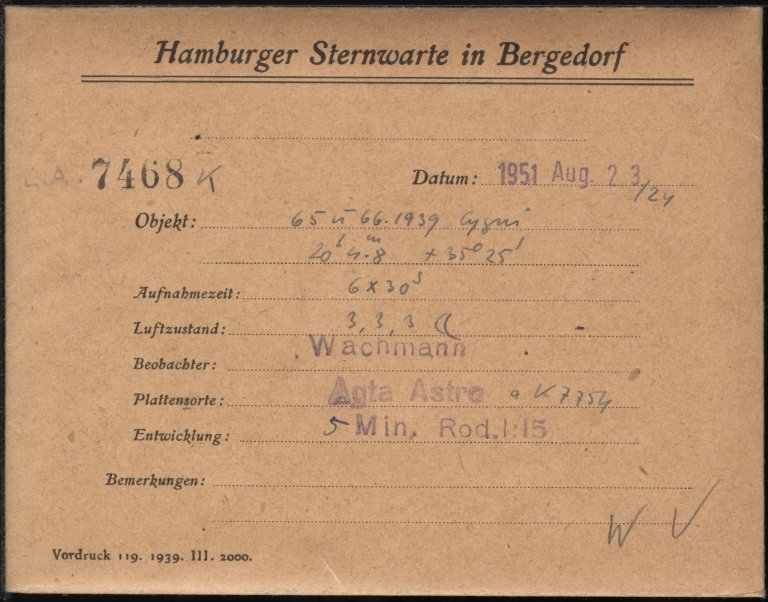 Hamburger Sternwarte in Bergedorf
A. 7468 K
Datum: 1951 Aug. 23/24
Objekt: 65 u 66.1939 Cygni
20h 4m.8 +35° 25'
Aufnahmezeit: 6x30s
Luftzustand: 3, 3, 3 ☾
Beobachter: Wachmann
Plattensorte: Agfa Astro a K 7754
Entwicklung: 5 Min. Rod. 1:15
Bemerkungen:
W V
Vordruck 119. 1939. III. 2000.